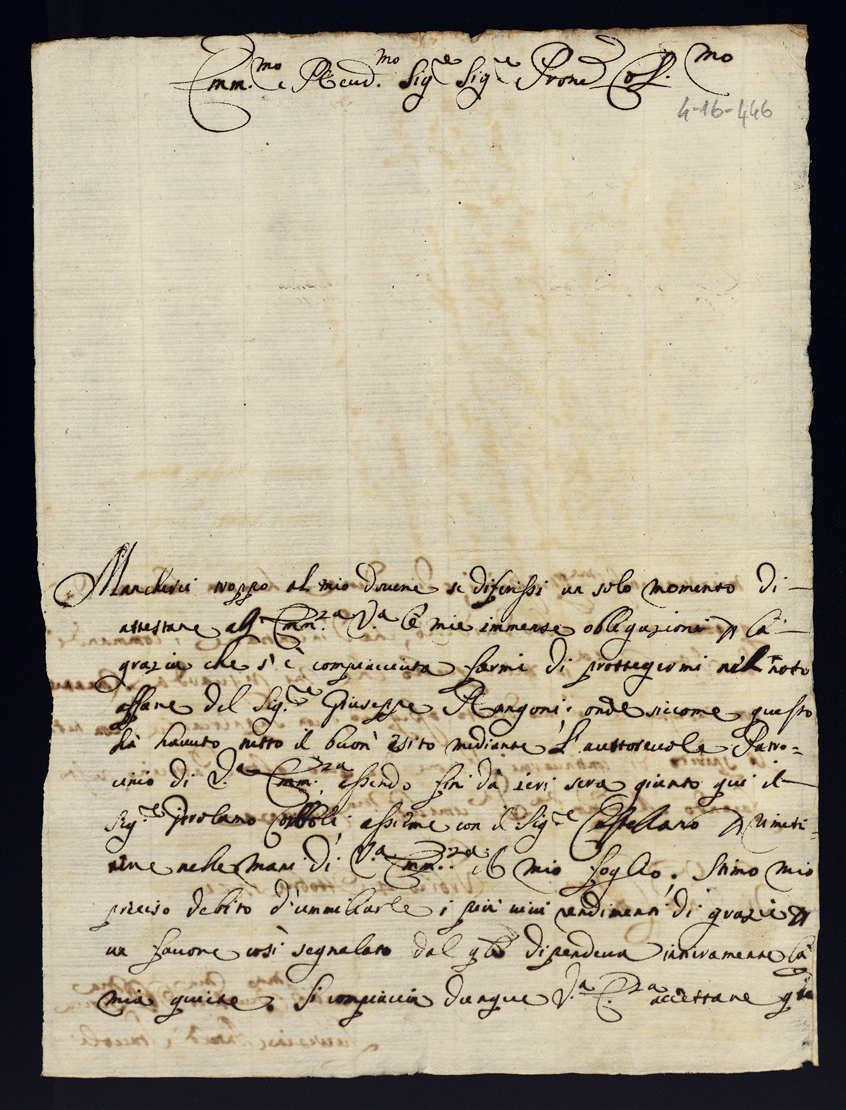 Emm.mo e Reud.mo Sig.e Sig.e Prone Col.mo
4-16-446
Mancherei troppo al mio douere se differissi un solo momento di
attestare all' Emm.za V.a le mie immense obligazioni p la
grazia che s'è compiacciuta farmi di proteggermi nel noto
affare del Sig.re Giuseppe Rangoni: onde siccome questo
hà hauuto tutto il buon' esito mediante l' auttoreuole Patro-
cinio di V.a Emm.za, essendo fin dà ieri sera giunto qui il
Sig.e Girolamo assieme con il Sig.e Castellano p rimet-
tere nelle mani di V.a Emm.za il mio foglio. Stimo mio
preciso debito d'ummiliarle i più uiui rendimenti di grazie p
un fauore così segnalato dal qle dipendeua intieramente la
mia quiete. Si compiaccia dunque V.a E.za accettare qta